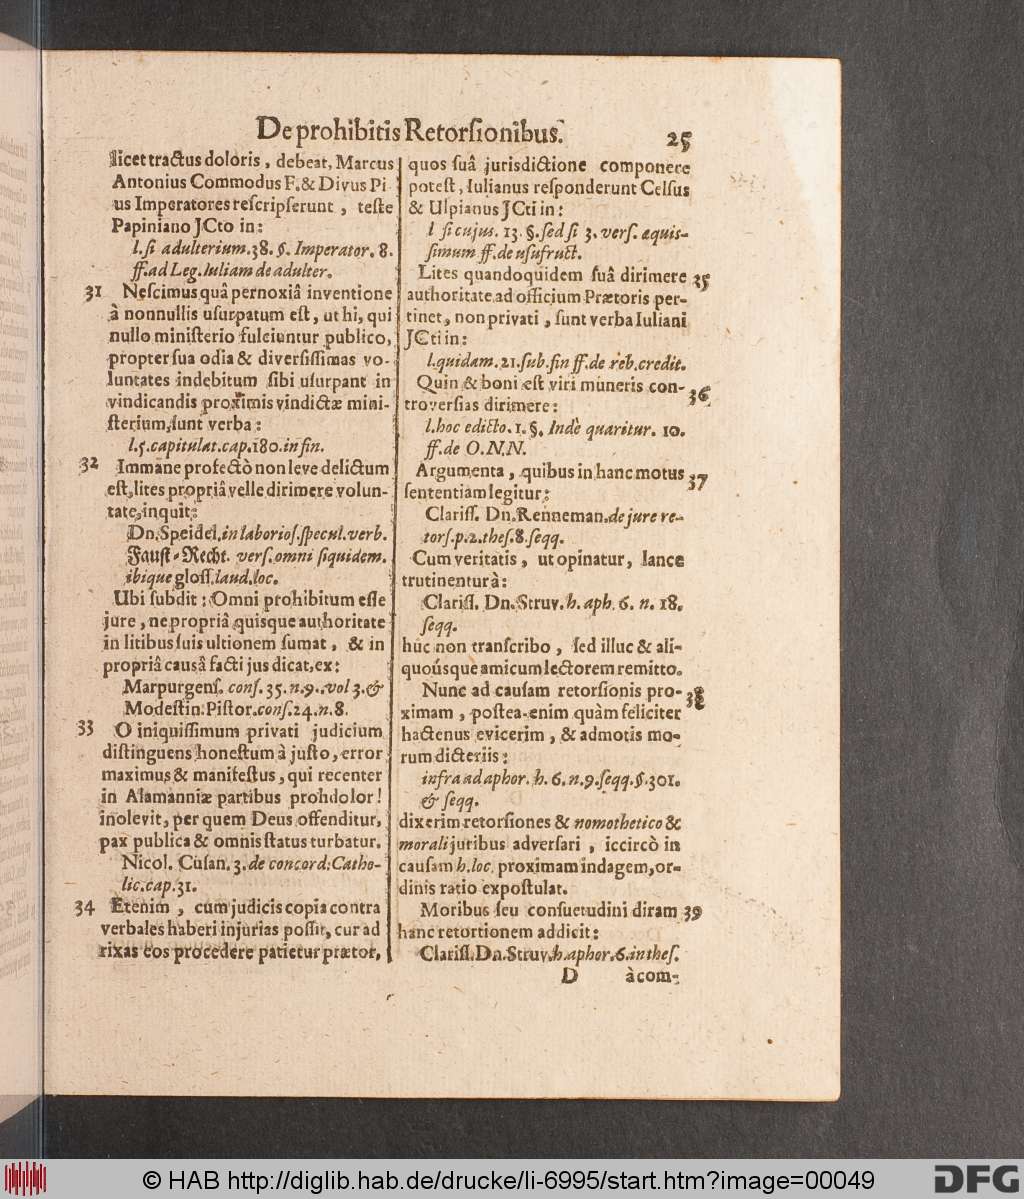 De prohibitis Retorsionibus. 25
licet tractus doloris, debeat, Marcus
Antonius Commodus F. & Divus Pi
us Imperatores rescripserunt, teste
Papiniano JCto in:
l. si adulterium. 38. §. Imperator. 8.
ff. ad Leg. Iuliam de adulter.
31 Nescimus quâ pernoxiâ inventione
à nonnullis usurpatum est, ut hi, qui
nullo ministerio fulciuntur publico,
propter sua odia & diversissimas vo-
luntates indebitum sibi usurpant in
vindicandis proximis vindictæ mini-
sterium, sunt verba:
l. 5. capitulat. cap. 180. in fin.
32 Immane profectò non leve delictum
est, lites propriâ velle dirimere volun-
tate, inquit:
Dn. Speidel. in laborios. specul. verb.
Faust-Recht. vers. omni siquidem.
ibique gloss. laud. loc.
Ubi subdit: Omni prohibitum esse
jure, ne propriâ quisque authoritate
in litibus suis ultionem sumat, & in
propriâ causâ facti jus dicat, ex:
Marpurgens. cons. 35. n. 9. vol 3. &
Modestin: Pistor. cons. 24. n. 8.
33 O iniquissimum privati judicium
distinguens honestum à justo, error
maximus & manifestus, qui recenter
in Alamanniæ partibus prohdolor!
inolevit, per quem Deus offenditur,
pax publica & omnis status turbatur.
Nicol. Cusan. 3. de concord: Catho-
lic. cap. 31.
34 Etenim, cum judicis copia contra
verbales haberi injurias possit, cur ad
rixas eos procedere patietur prætor,
quos suâ jurisdictione componere
potest, Iulianus responderunt Celsus
& Ulpianus JCti in:
l si cujus. 13. §. sed si 3. vers. æquis-
simum ff. de usufruct.
Lites quandoquidem suâ dirimere 35
authoritate ad officium Prætoris per-
tinet, non privati, sunt verba Iuliani
JCti in:
l. quidam. 21. sub. fin ff. de reb. credit.
Quin & boni est viri muneris con- 36
troversias dirimere:
l. hoc edicto. 1. §. Indè quæritur. 10.
ff. de O. N. N.
Argumenta, quibus in hanc motus 37
sententiam legitur:
Clariss. Dn. Renneman. de jure re-
tors. p. 2. thes. 8. seqq.
Cum veritatis, ut opinatur, lance
trutinentur à:
Clariss. Dn. Struv. h. aph. 6. n. 18.
seqq.
hûc non transcribo, sed illuc & ali-
quoúsque amicum lectorem remitto.
Nunc ad causam retorsionis pro- 38
ximam, postea enim quàm feliciter
hactenus evicerim, & admotis mo-
rum dicteriis:
infra ad aphor. h. 6. n. 9. seqq. §. 301.
& seqq.
dixerim retorsiones & nomothetico &
morali juribus adversari, iccircò in
causam h. loc. proximam indagem, or-
dinis ratio expostulat.
Moribus seu consuetudini diram 39
hanc retortionem addicit:
Clariss. Dn. Struv. h. aphor. 6. in thes.
D à com-
© HAB http://diglib.hab.de/drucke/li-6995/start.htm?image=00049
DFG